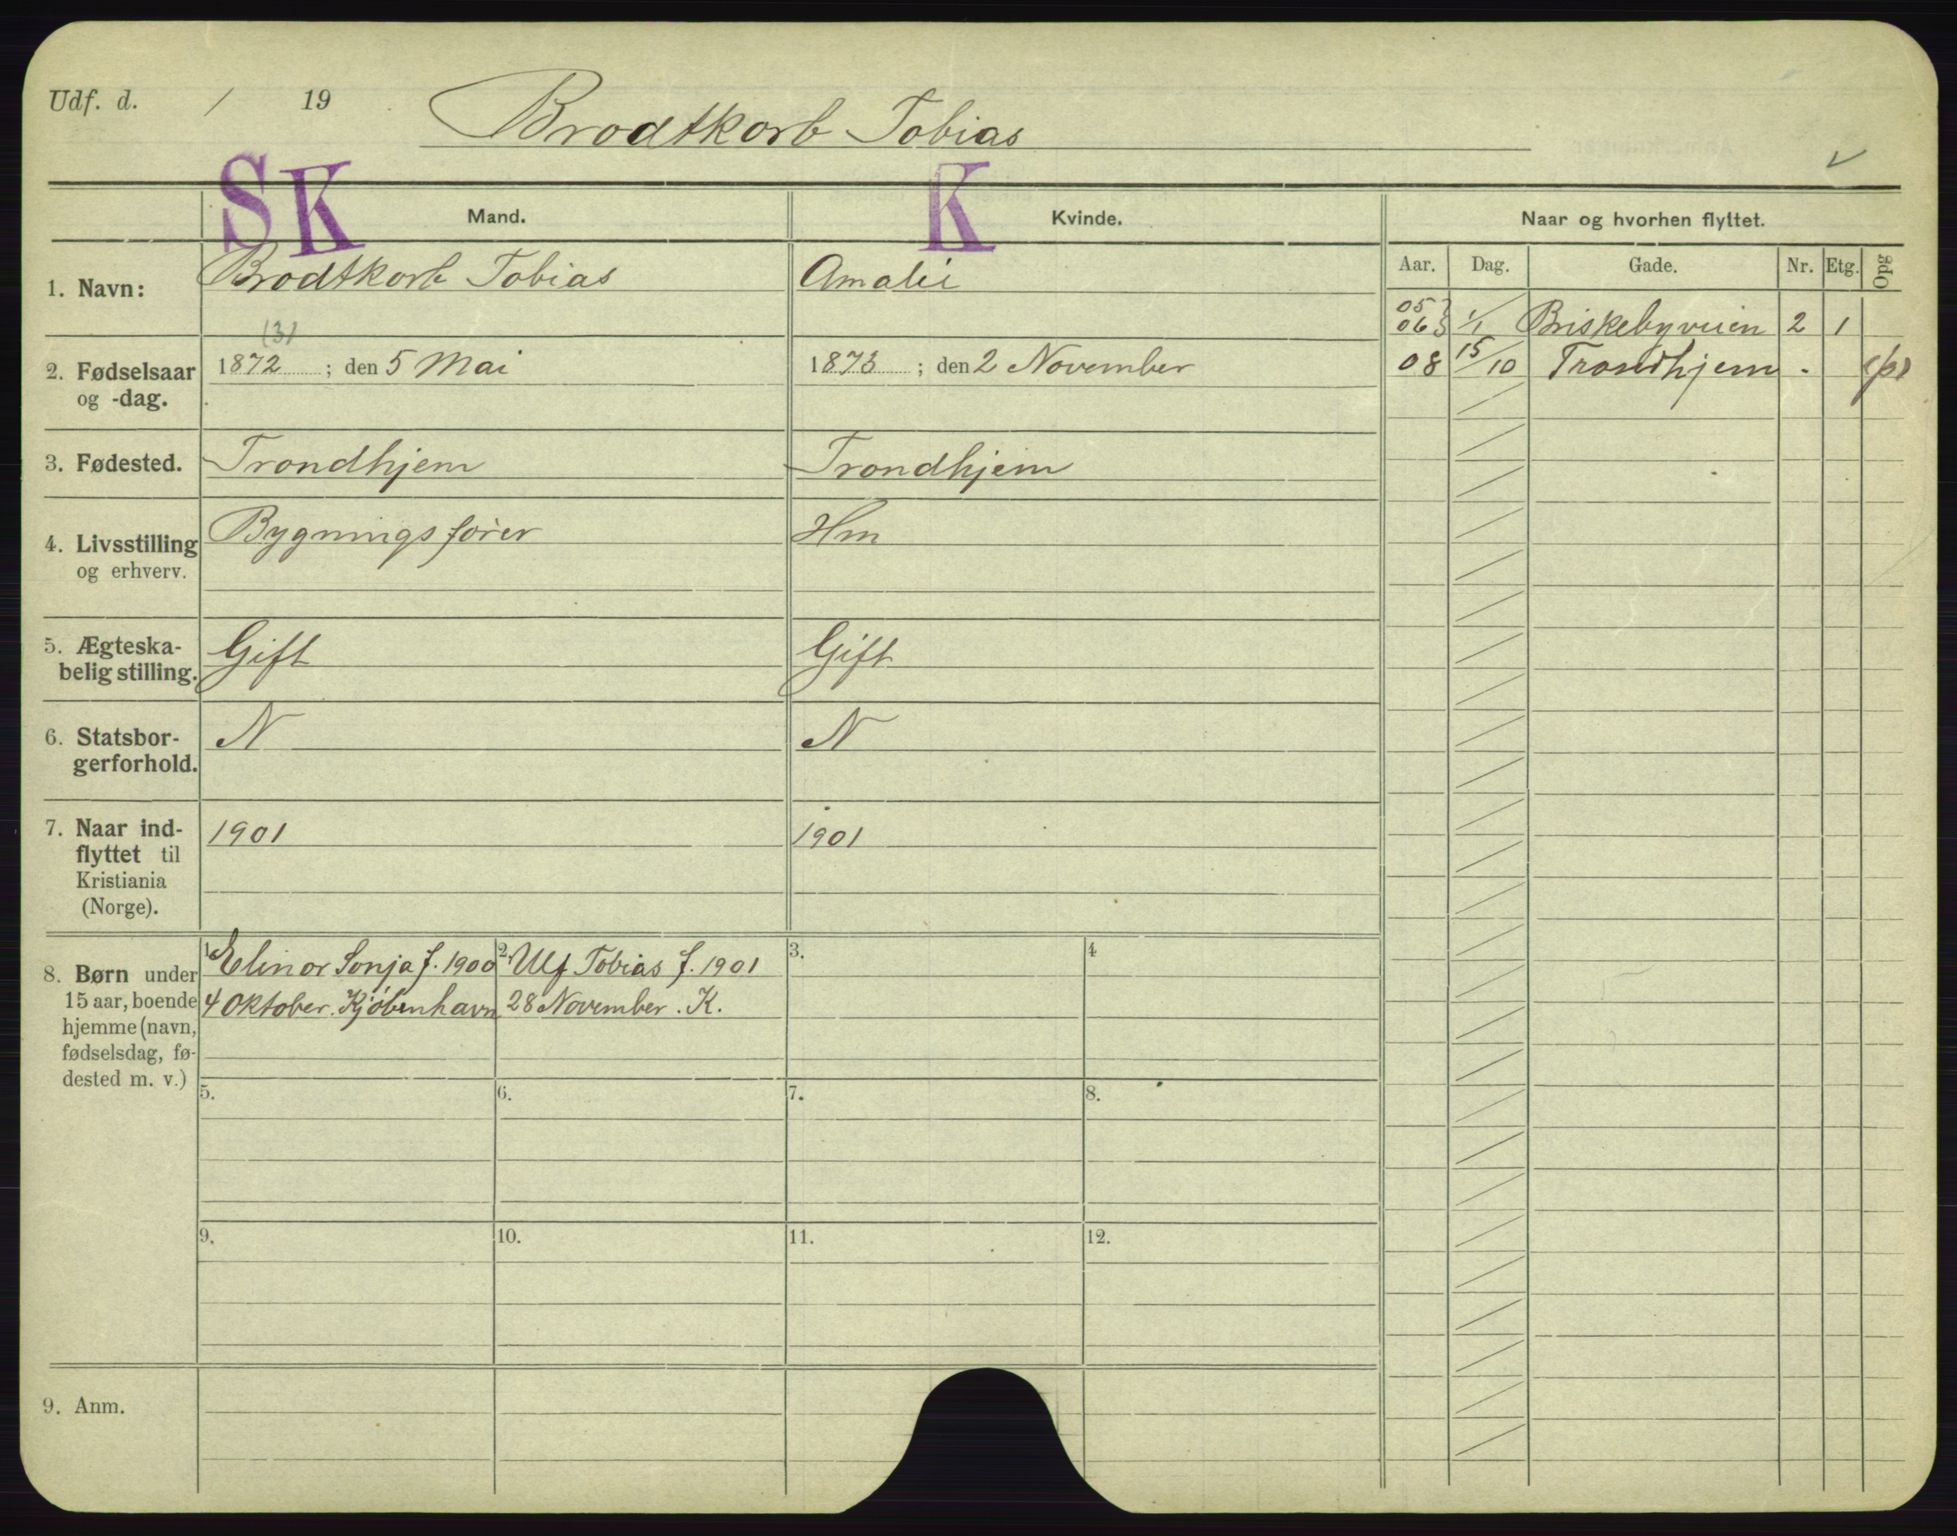 Udf. d. / 19
Brodtkorb Tobias
SK K
Mand. Kvinde. Naar og hvorhen flyttet.
Aar. Dag. Gade. Nr. Etg. Opg
1. Navn: Brodtkorb Tobias Amalie
05
06 1/1 Briskebyveien 2 1
08 15/10 Trondhjem - (p)
(3)
2. Fødselsaar 1872 ; den 5 Mai 1873 ; den 2 November
og -dag.
3. Fødested. Trondhjem Trondhjem
4. Livsstilling Bygningsfører Hm
og erhverv.
5. Ægteska- Gift Gift
belig stilling.
6. Statsbor- N N
gerforhold.
7. Naar ind- 1901 1901
flyttet til
Kristiania
(Norge).
8. Børn under
15 aar, boende
hjemme (navn,
fødselsdag, fø-
dested m. v.)
1. Elinor Sonja f. 1900
4 Oktober. Kjøbenhavn
2. Ulf Tobias f. 1901
28 November. K.
3. 4
5. 6. 7. 8.
9. 10. 11. 12.
9. Anm.